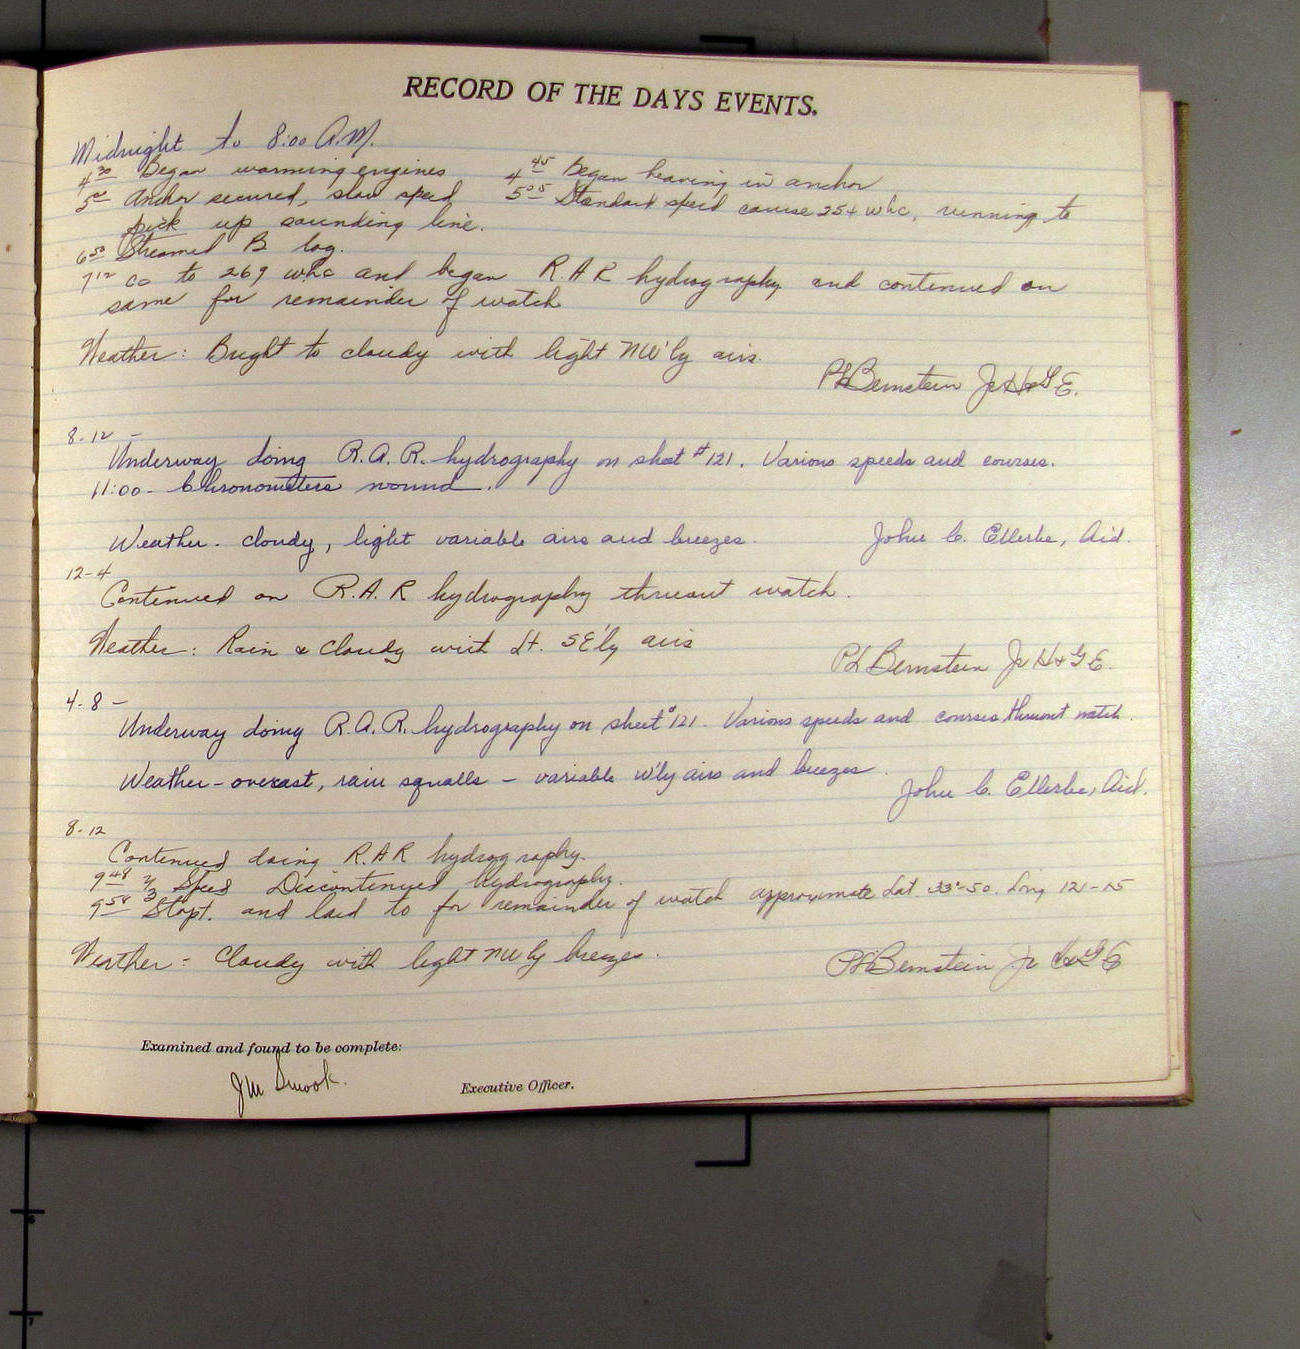 RECORD OF THE DAYS EVENTS.
Midnight to 8:00 A.M.
4 30 Began warming engines 4 45 Began heaving in anchor
5 00 Anchor secured, slow speed 5 05 Standard speed course 254 whc, running to
pick up sounding line.
6 50 Streamed B log.
7 12 cc to 269 whc and began R.A.R hydrography and continued on
same for remainder of watch
Weather: Bright to cloudy with light NW'ly airs.
PL Bernstein Jr H&GE.
8-12 -
Underway doing R.A.R. hydrography on sheet #121. Various speeds and courses.
11:00 - Chronometers wound.
Weather - cloudy, light variable airs and breezes. John C. Ellerbe, Aid.
12-4
Continued on R.A.R hydrography thruout watch.
Weather: Rain & Cloudy with Lt. SE'ly airs
PL Bernstein Jr H&GE.
4-8 -
Underway doing R.A.R. hydrography on sheet #121. Various speeds and courses thruout watch.
Weather - overcast, rain squalls - variable w'ly airs and breezes.
John C. Ellerbe, Aid.
8-12
Continued doing R.A.R hydrography.
9 48 2/3 Speed Discontinued hydrography.
9 58 Stopt. and laid to for remainder of watch approximate Lat. 33°-50. Long 121-15
Weather = Cloudy with light NW'ly breezes.
PL Bernstein Jr H&GE
Examined and found to be complete:
JM Smook.
Executive Officer.
6
7